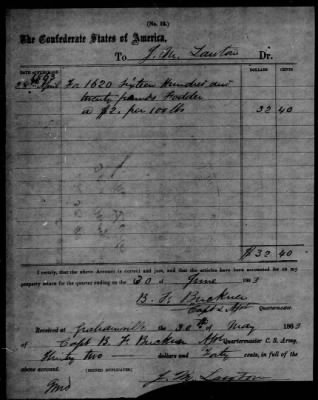 (No. 22.)
The Confederate States of America,
To J. M. Lawton Dr.
DOLLARS CENTS
April For 1620 Sixteen Hundred and
twenty pounds Fodder
a $2. per 100 lbs 32 40
$ 32 40
I certify, that the above account is correct and just, and that the articles have been accounted for on my
property return for the quarter ending on the 30 of June 1863
B. F. Buckner
Capt & AQM Quartermaster.
Received at Grahamville the 30th of May 1863
of Capt B. F. Buckner Quartermaster C. S. Army,
thirty two dollars and Forty cents, in full of the
above account. (SIGNED DUPLICATES)
J. M. Lawton